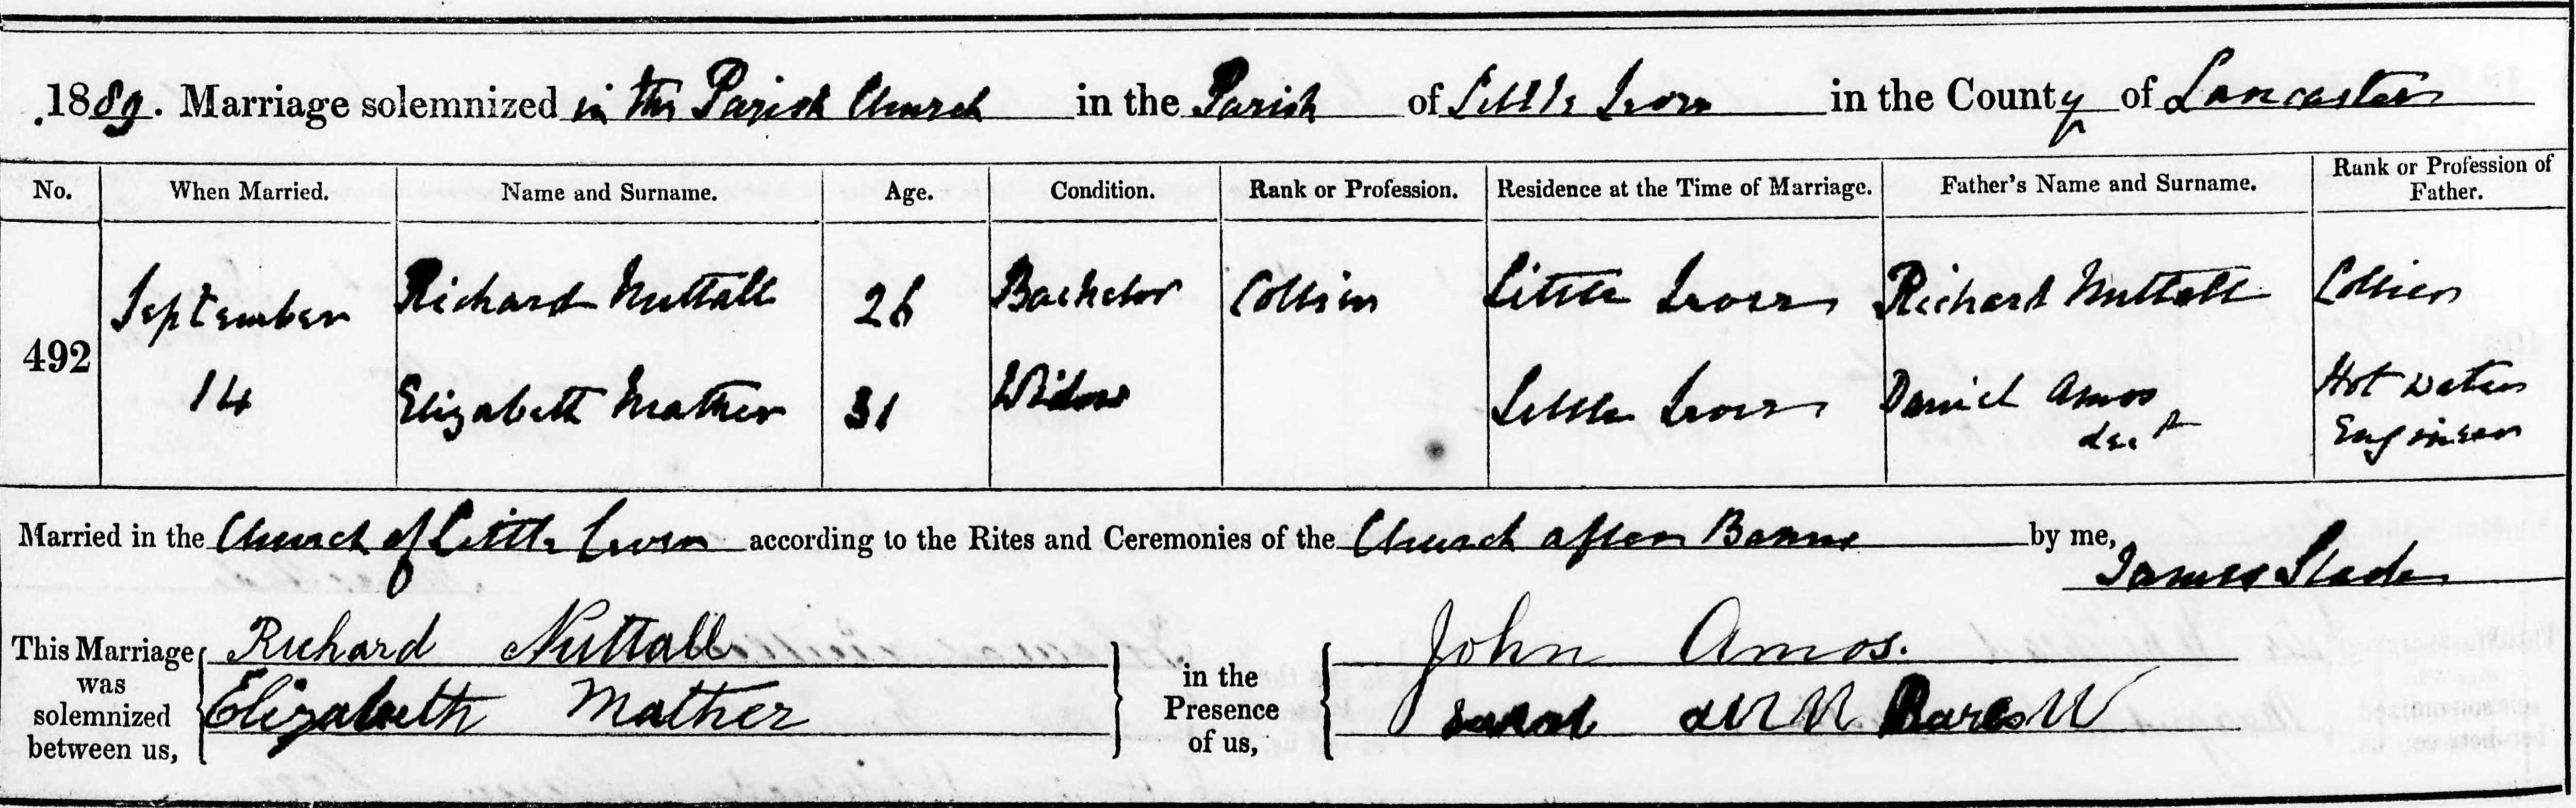 1889. Marriage solemnized in the Parish Church in the Parish of Little Lever in the County of Lancaster
No. When Married. Name and Surname. Age. Condition. Rank or Profession. Residence at the Time of Marriage. Father's Name and Surname. Rank or Profession of Father.
492 September 14 Richard Nuttall 26 Bachelor Collier Little Lever Richard Nuttall Collier
Elizabeth Mather 31 Widow Little Lever Daniel Amos decd Hot Water Engineer
Married in the Church of Little Lever according to the Rites and Ceremonies of the Church after Banns by me,
James Slade
This Marriage was solemnized between us, Richard Nuttall
Elizabeth Mather
in the Presence of us, John Amos.
Sarah